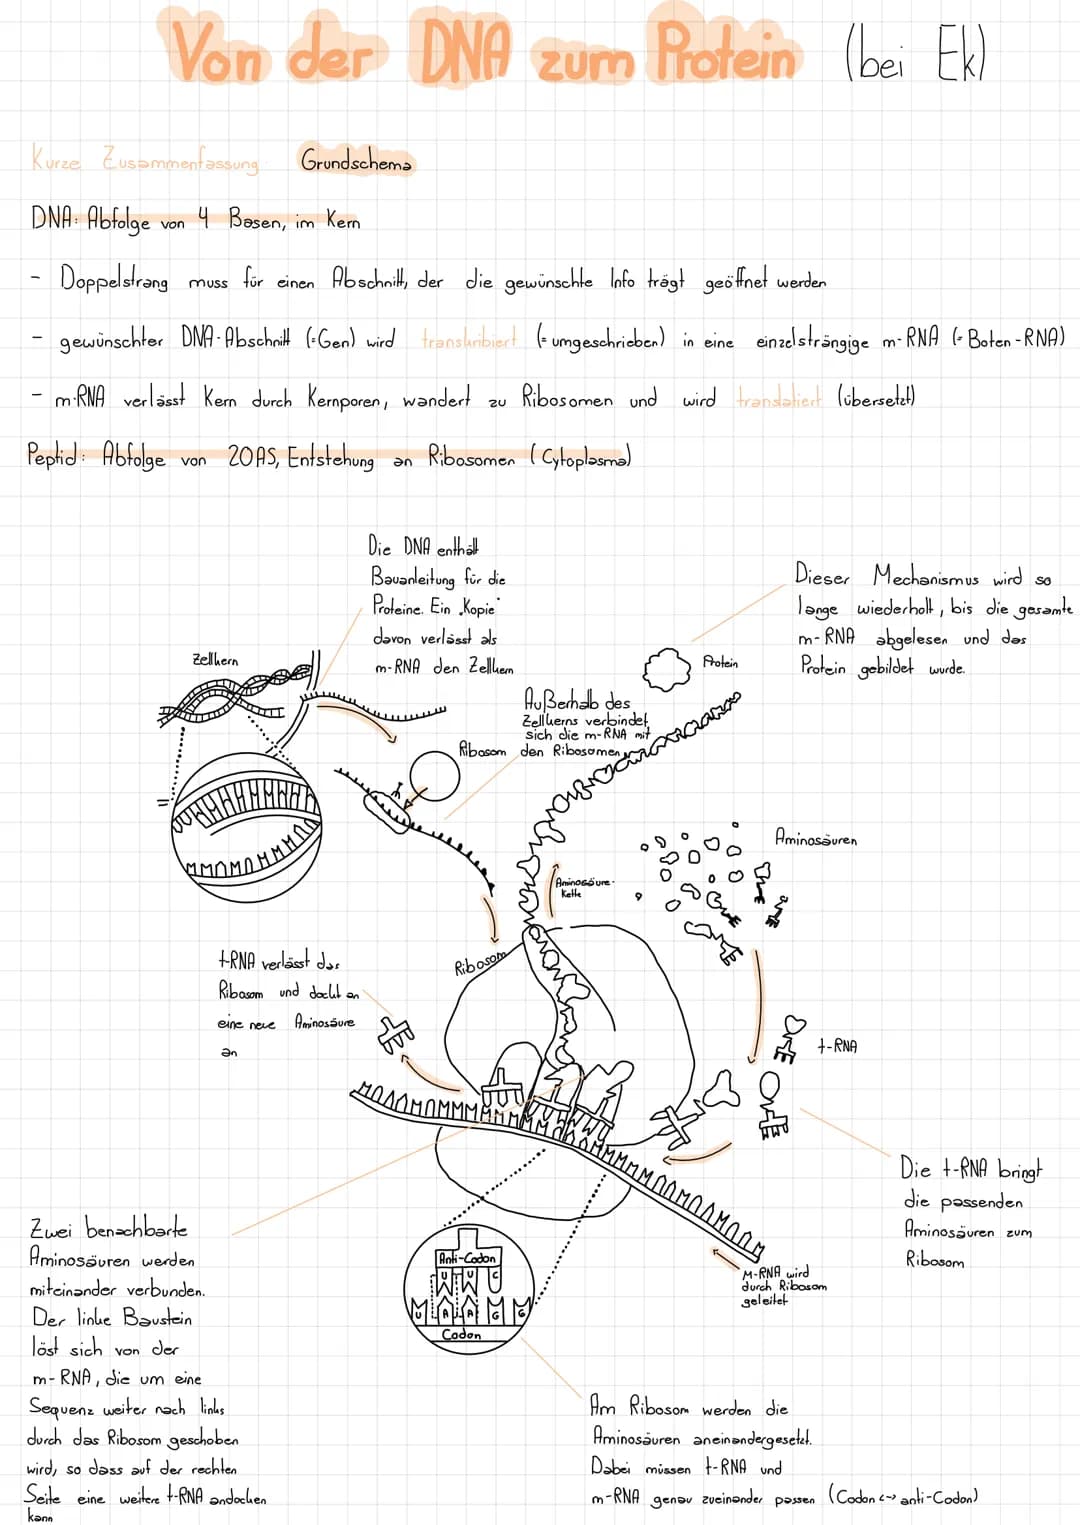 Von der DNA zum Protein (bei Ek)
Kurze Zusammenfassung: Grundschema
DNA: Abfolge von 4 Basen, im Kern
- Doppelstrang muss für einen Abschnitt, der die gewünschte Info trägt geöffnet werden
- gewünschter DNA-Abschnitt (=Gen) wird transkribiert (= umgeschrieben) in eine einzelsträngige m-RNA (= Boten-RNA)
- m-RNA verlässt Kern durch Kernporen, wandert zu Ribosomen und wird translatiert (übersetzt)
Peptid: Abfolge von 20 AS, Entstehung an Ribosomen (Cytoplasma)
Die DNA enthält
Bauanleitung für die
Proteine. Ein „Kopie"
davon verlässt als
m-RNA den Zellkern
Dieser Mechanismus wird so
lange wiederholt, bis die gesamte
m-RNA abgelesen und das
Protein gebildet wurde.
Zellkern
Protein
Außerhalb des
Zellkerns verbindet
sich die m-RNA mit
den Ribosomen
Ribosom
Aminosäuren
Aminosäure-
Kette
t-RNA verlässt das
Ribosom und dockt an
eine neue Aminosäure
an
Ribosom
t-RNA
Die t-RNA bringt
die passenden
Aminosäuren zum
Ribosom
Zwei benachbarte
Aminosäuren werden
miteinander verbunden.
Der linke Baustein
löst sich von der
m-RNA, die um eine
Sequenz weiter nach links
durch das Ribosom geschoben
wird, so dass auf der rechten
Seite eine weitere t-RNA andocken
kann
Anti-Codon
U U C
U A A G G
Codon
M-RNA wird
durch Ribosom
geleitet
Am Ribosom werden die
Aminosäuren aneinandergesetzt.
Dabei müssen t-RNA und
m-RNA genau zueinander passen (Codon <-> anti-Codon)